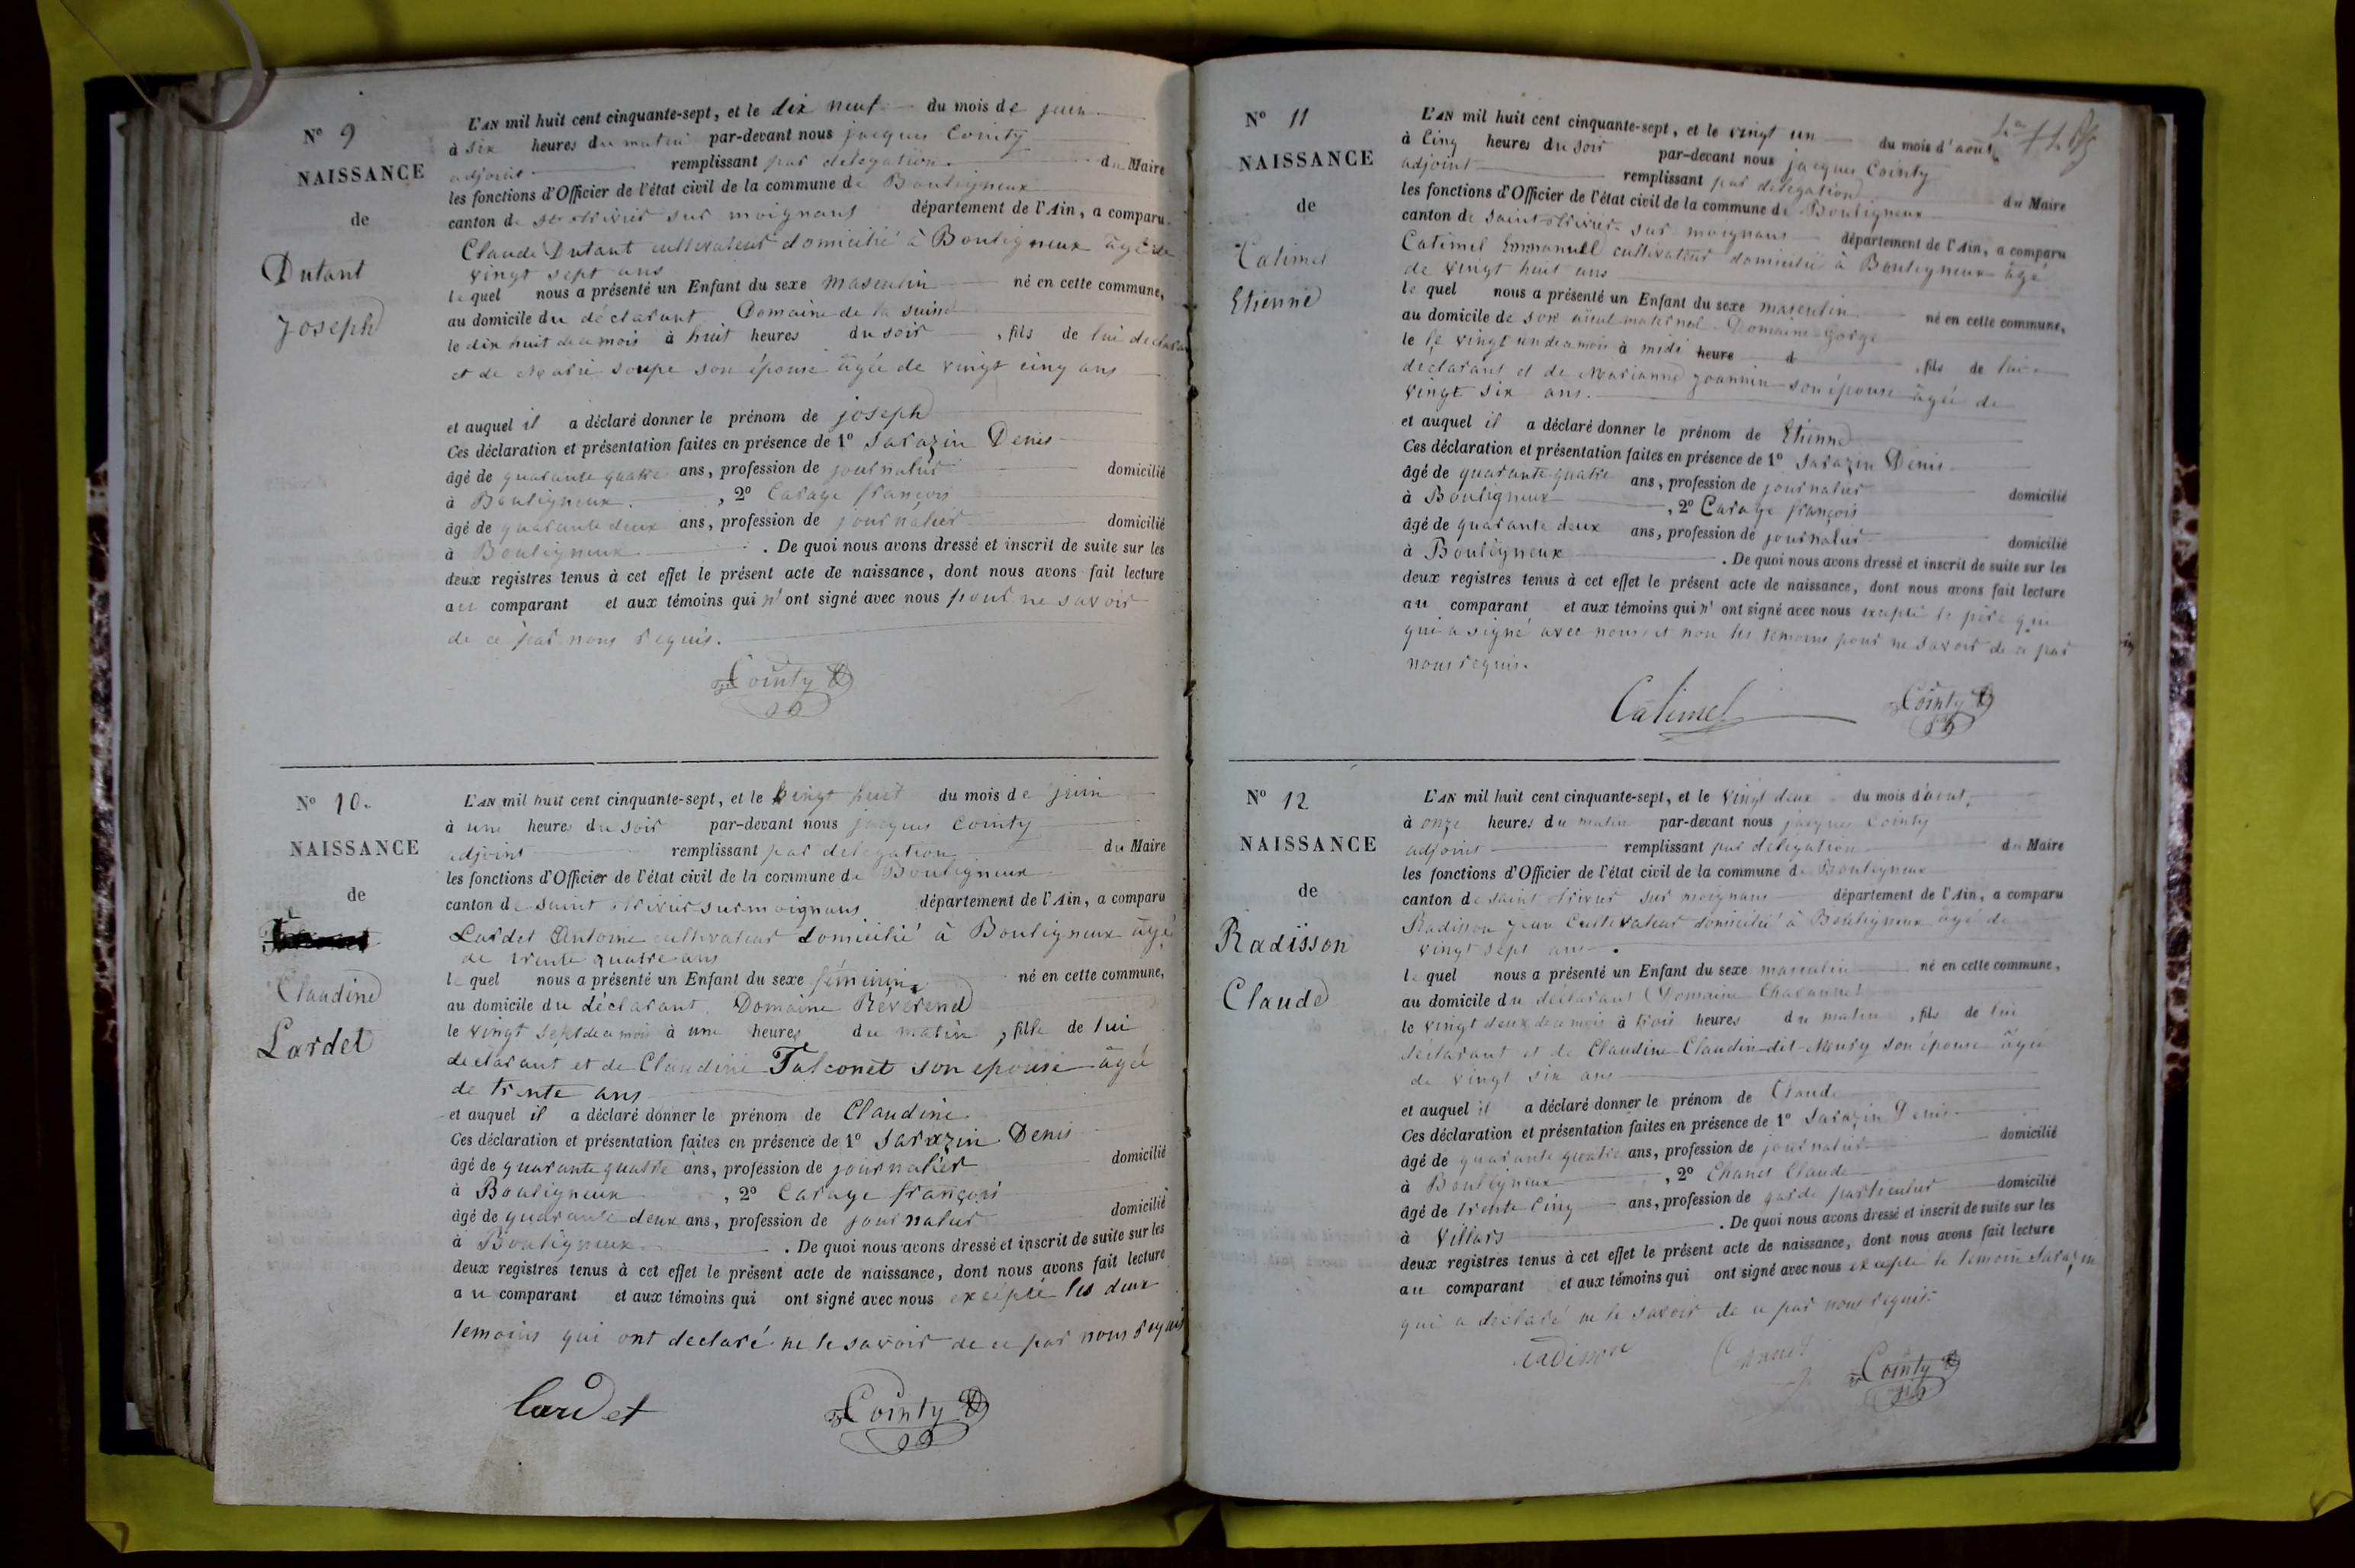 N° 9
NAISSANCE
de
Dutant
Joseph
L'AN mil huit cent cinquante-sept, et le dix neuf du mois de juin
à six heures du matin par-devant nous jacques Cointy
adjoint remplissant par délégation du Maire
les fonctions d'Officier de l'état civil de la commune de Bouligneux
canton de st trivier sur moignans département de l'Ain, a comparu
Claude Dutant cultivateur domicilié à Bouligneux âgé de
vingt sept ans
lequel nous a présenté un Enfant du sexe masculin né en cette commune,
au domicile du déclarant Domaine de la
le dix huit de ce mois à huit heures du soir, fils de lui déclarant
et de Marie Soupe son épouse âgée de vingt cinq ans
et auquel il a déclaré donner le prénom de joseph
Ces déclaration et présentation faites en présence de 1° Sarazin Denis
âgé de quarante quatre ans, profession de journalier domicilié
à Bouligneux, 2° Carage françois
âgé de quarante deux ans, profession de journalier domicilié
à Bouligneux. De quoi nous avons dressé et inscrit de suite sur les
deux registres tenus à cet effet le présent acte de naissance, dont nous avons fait lecture
au comparant et aux témoins qui n'ont signé avec nous pour ne savoir
de ce par nous requis.
Cointy
N° 10.
NAISSANCE
de
Claudine
Lardet
L'AN mil huit cent cinquante-sept, et le vingt huit du mois de juin
à une heures du soir par-devant nous jacques Cointy
adjoint remplissant par délégation du Maire
les fonctions d'Officier de l'état civil de la commune de Bouligneux
canton de saint trivier sur moignans département de l'Ain, a comparu
Lardet Antoine cultivateur domicilié à Bouligneux âgé
de trente quatre ans
lequel nous a présenté un Enfant du sexe féminin né en cette commune,
au domicile du déclarant Domaine Reverend
le vingt sept de ce mois à une heures du matin, fille de lui
declarant et de Claudine Falconet son epouse âgée
de trente ans
et auquel il a déclaré donner le prénom de Claudine
Ces déclaration et présentation faites en présence de 1° Sarazin Denis
âgé de quarante quatre ans, profession de journalier domicilié
à Bouligneux, 2° Carage françois
âgé de quarante deux ans, profession de journalier domicilié
à Bouligneux. De quoi nous avons dressé et inscrit de suite sur les
deux registres tenus à cet effet le présent acte de naissance, dont nous avons fait lecture
au comparant et aux témoins qui ont signé avec nous excepté les deux
temoins qui ont declaré ne le savoir de ce par nous requis
Lardet Cointy
N° 11
NAISSANCE
de
Catimel
Etienne
L'AN mil huit cent cinquante-sept, et le vingt un du mois d'août
à Cinq heures du soir par-devant nous jacques Cointy
adjoint remplissant par délégation du Maire
les fonctions d'Officier de l'état civil de la commune de Bouligneux
canton de saint trivier sur moignans département de l'Ain, a comparu
Catimel Emmanuell cultivateur domicilié à Bouligneux âgé
de vingt huit ans
lequel nous a présenté un Enfant du sexe masculin né en cette commune,
au domicile de son aïeul maternel Domaine Gorge
le vingt un de ce mois à midi heure d, fils de lui
declarant et de Marianne joannin son épouse âgée de
vingt six ans.
et auquel il a déclaré donner le prénom de Etienne
Ces déclaration et présentation faites en présence de 1° Sarazin Denis
âgé de quarante quatre ans, profession de journalier domicilié
à Bouligneux, 2° Carage françois
âgé de quarante deux ans, profession de journalier domicilié
à Bouligneux. De quoi nous avons dressé et inscrit de suite sur les
deux registres tenus à cet effet le présent acte de naissance, dont nous avons fait lecture
au comparant et aux témoins qui n'ont signé avec nous excepté le père qui
qui a signé avec nous et non les temoins pour ne savoir de ce par
nous requis.
Catimel Cointy
N° 12
NAISSANCE
de
Radisson
Claude
L'AN mil huit cent cinquante-sept, et le vingt deux du mois d'aout,
à onze heures du matin par-devant nous jacques Cointy
adjoint remplissant par délégation du Maire
les fonctions d'Officier de l'état civil de la commune de Bouligneux
canton de saint trivier sur moignans département de l'Ain, a comparu
Radisson Jean Cultivateur domicilié à Bouligneux âgé de
vingt sept ans
lequel nous a présenté un Enfant du sexe masculin né en cette commune,
au domicile du déclarant Domaine
le vingt deux de ce mois à trois heures du matin, fils de lui
déclarant et de Claudine Claudin dit Moury son épouse âgée
de vingt six ans
et auquel il a déclaré donner le prénom de Claude
Ces déclaration et présentation faites en présence de 1° Sarazin Denis
âgé de quarante quatre ans, profession de journalier domicilié
à Bouligneux, 2° Chanel Claude
âgé de trente Cinq ans, profession de garde particulier domicilié
à Villars. De quoi nous avons dressé et inscrit de suite sur les
deux registres tenus à cet effet le présent acte de naissance, dont nous avons fait lecture
au comparant et aux témoins qui ont signé avec nous excepté le temoin Sarazin
qui a déclaré ne le savoir de ce par nous requis.
Radisson Chanel Cointy